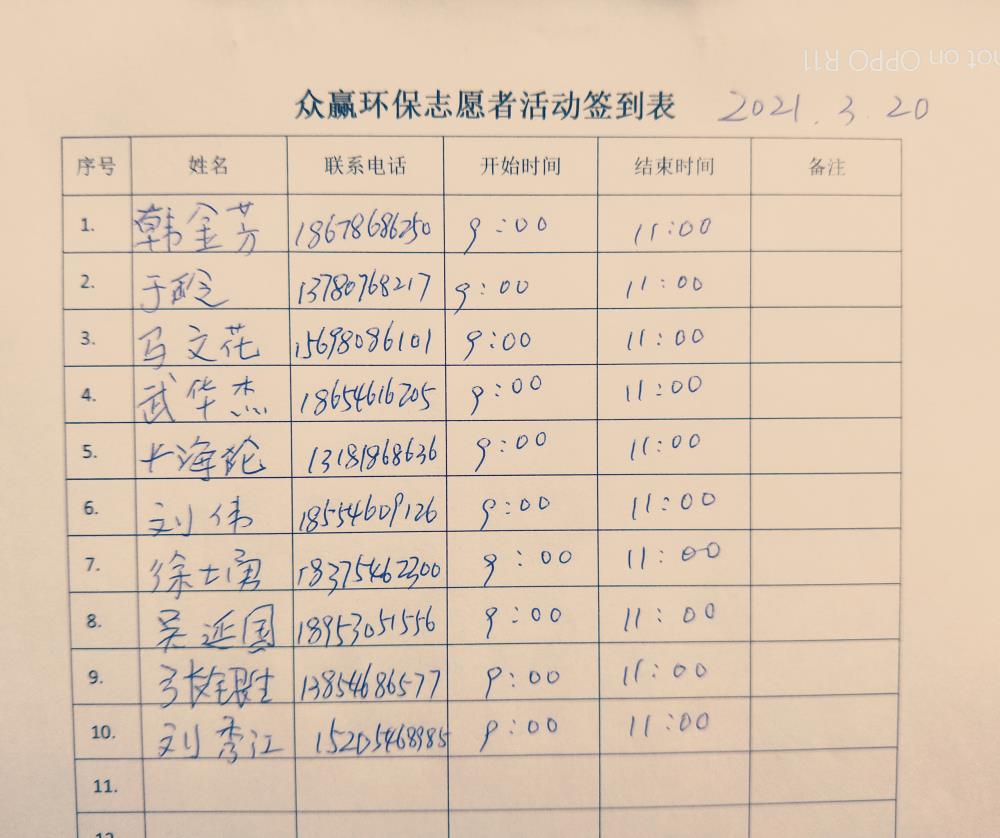 hot on OPPO R11
众赢环保志愿者活动签到表 2021.3.20
序号 姓名 联系电话 开始时间 结束时间 备注
1. 韩金芳 18678686250 9:00 11:00
2. 于玲 13780768217 9:00 11:00
3. 马文花 15698086101 9:00 11:00
4. 武华杰 18654616205 9:00 11:00
5. 卜海轮 13181868636 9:00 11:00
6. 刘伟 18554609126 9:00 11:00
7. 徐士勇 18375462300 9:00 11:00
8. 吴延国 18953051556 9:00 11:00
9. 张银胜 13854686577 9:00 11:00
10. 刘秀江 15205468985 9:00 11:00
11.